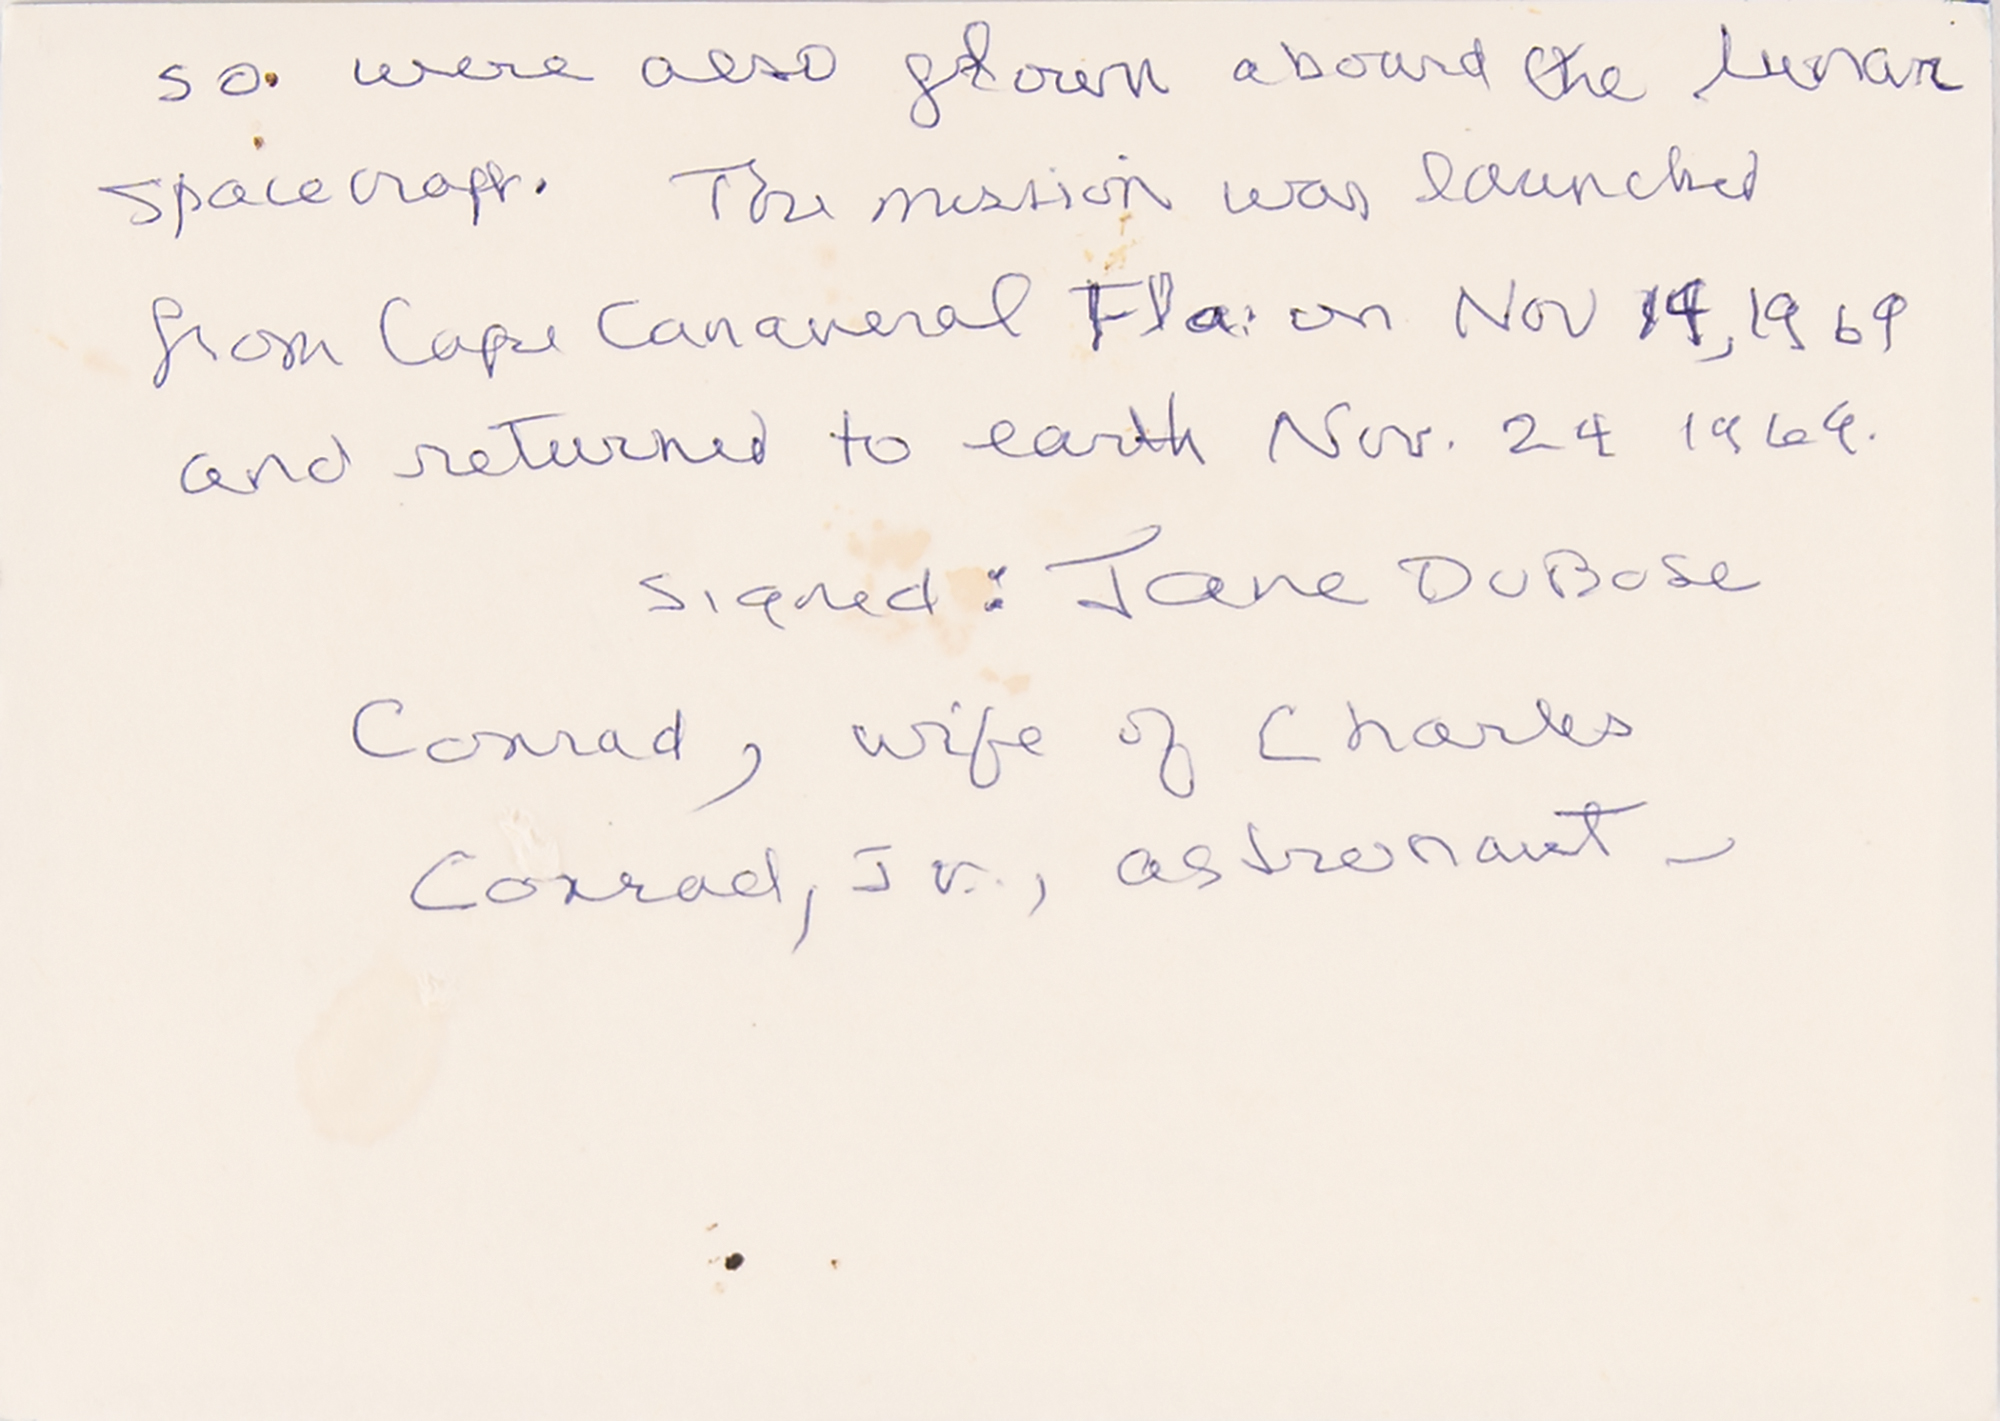 so. were also flown aboard the lunar
spacecraft. The mission was launched
from Cape Canaveral Fla. on Nov 14, 1969
and returned to earth Nov. 24 1969.
signed: Jane DuBose
Conrad, wife of Charles
Conrad, Jr., astronaut –